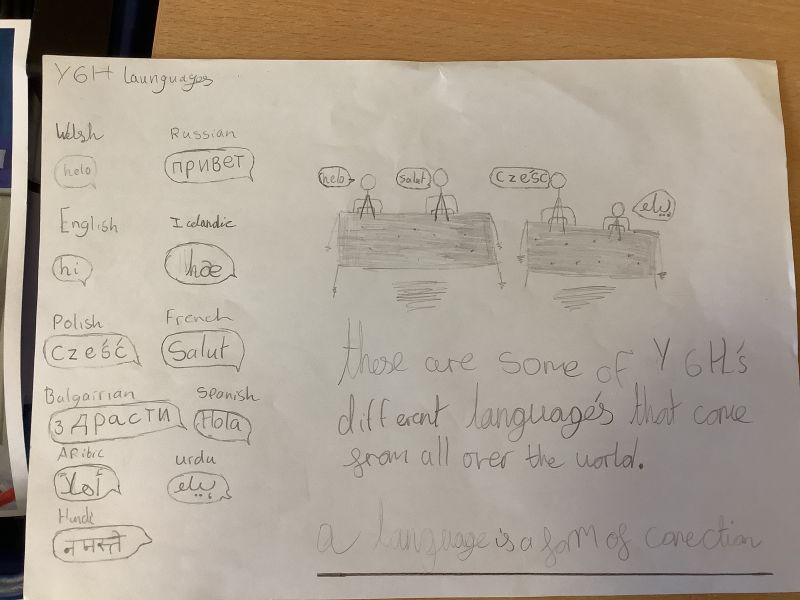 Y6H Launguages
Welsh
helo
Russian
привет
English
hi
Icelandic
hæ
Polish
Cześć
French
Salut
Balgairian
здрасти
Spanish
Hola
ARibic
أهلاً
urdu
Hinde
नमस्ते
helo
Salut
Cześć
these are some of Y6H's
different language's that come
from all over the world.
a language is a form of conection